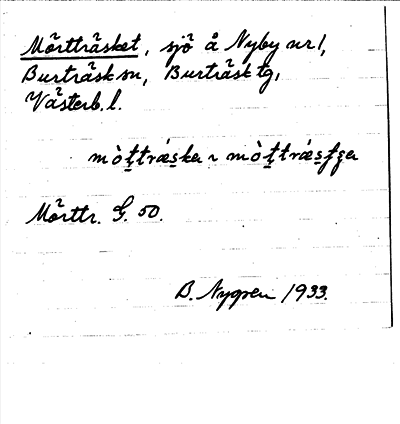 Mörtträsket, sjö å Nyby nr 1,
Burträsk sn, Burträsk tg,
Västerb. l.
mò̱ttráe̱ska ~ mò̱ttráe̱sʃʒa
Mörttr. G. 50.
B. Nygren 1933.